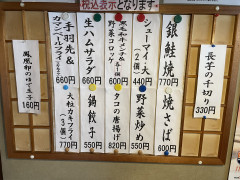 税込表示となります。
長芋の千切り
330円
銀鮭焼
770円
焼さば
600円
シューマイ
(2個)
440円
野菜炒め
550円
野菜コロッケ
660円
タコの唐揚げ
820円
生ハムサラダ
660円
鍋餃子
550円
手羽先&
カマンベールフライ
660円
大粒カキフライ
(3個)
770円
鳳凰卵のゆで玉子
160円